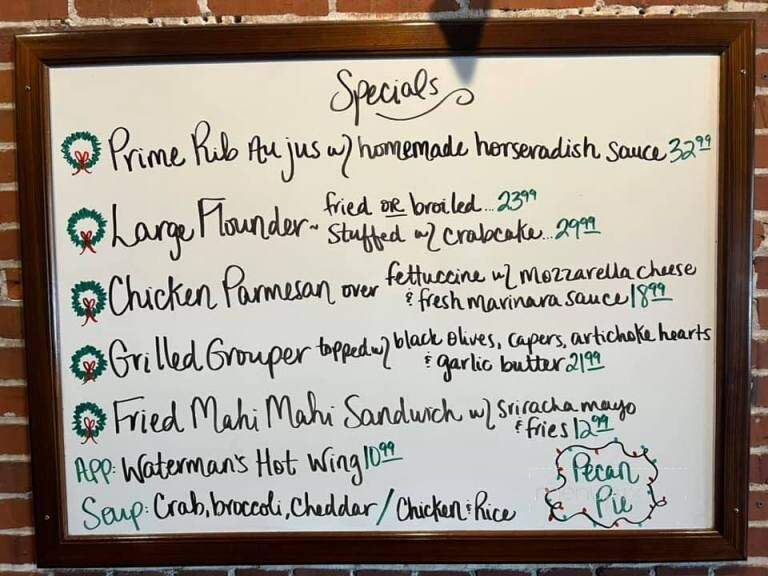 Specials
Prime Rib Au jus w/ homemade horseradish sauce 32⁹⁹
Large Flounder ~ fried OR broiled... 23⁹⁹
Stuffed w/ crabcake... 29⁹⁹
Chicken Parmesan over fettuccine w/ mozzarella cheese
& fresh marinara sauce 18⁹⁹
Grilled Grouper topped w/ black olives, capers, artichoke hearts
& garlic butter 21⁹⁹
Fried Mahi Mahi Sandwich w/ sriracha mayo
& fries 12⁹⁹
APP: Waterman's Hot Wing 10⁹⁹
Soup: Crab, broccoli, cheddar / Chicken & Rice
Pecan
Pie